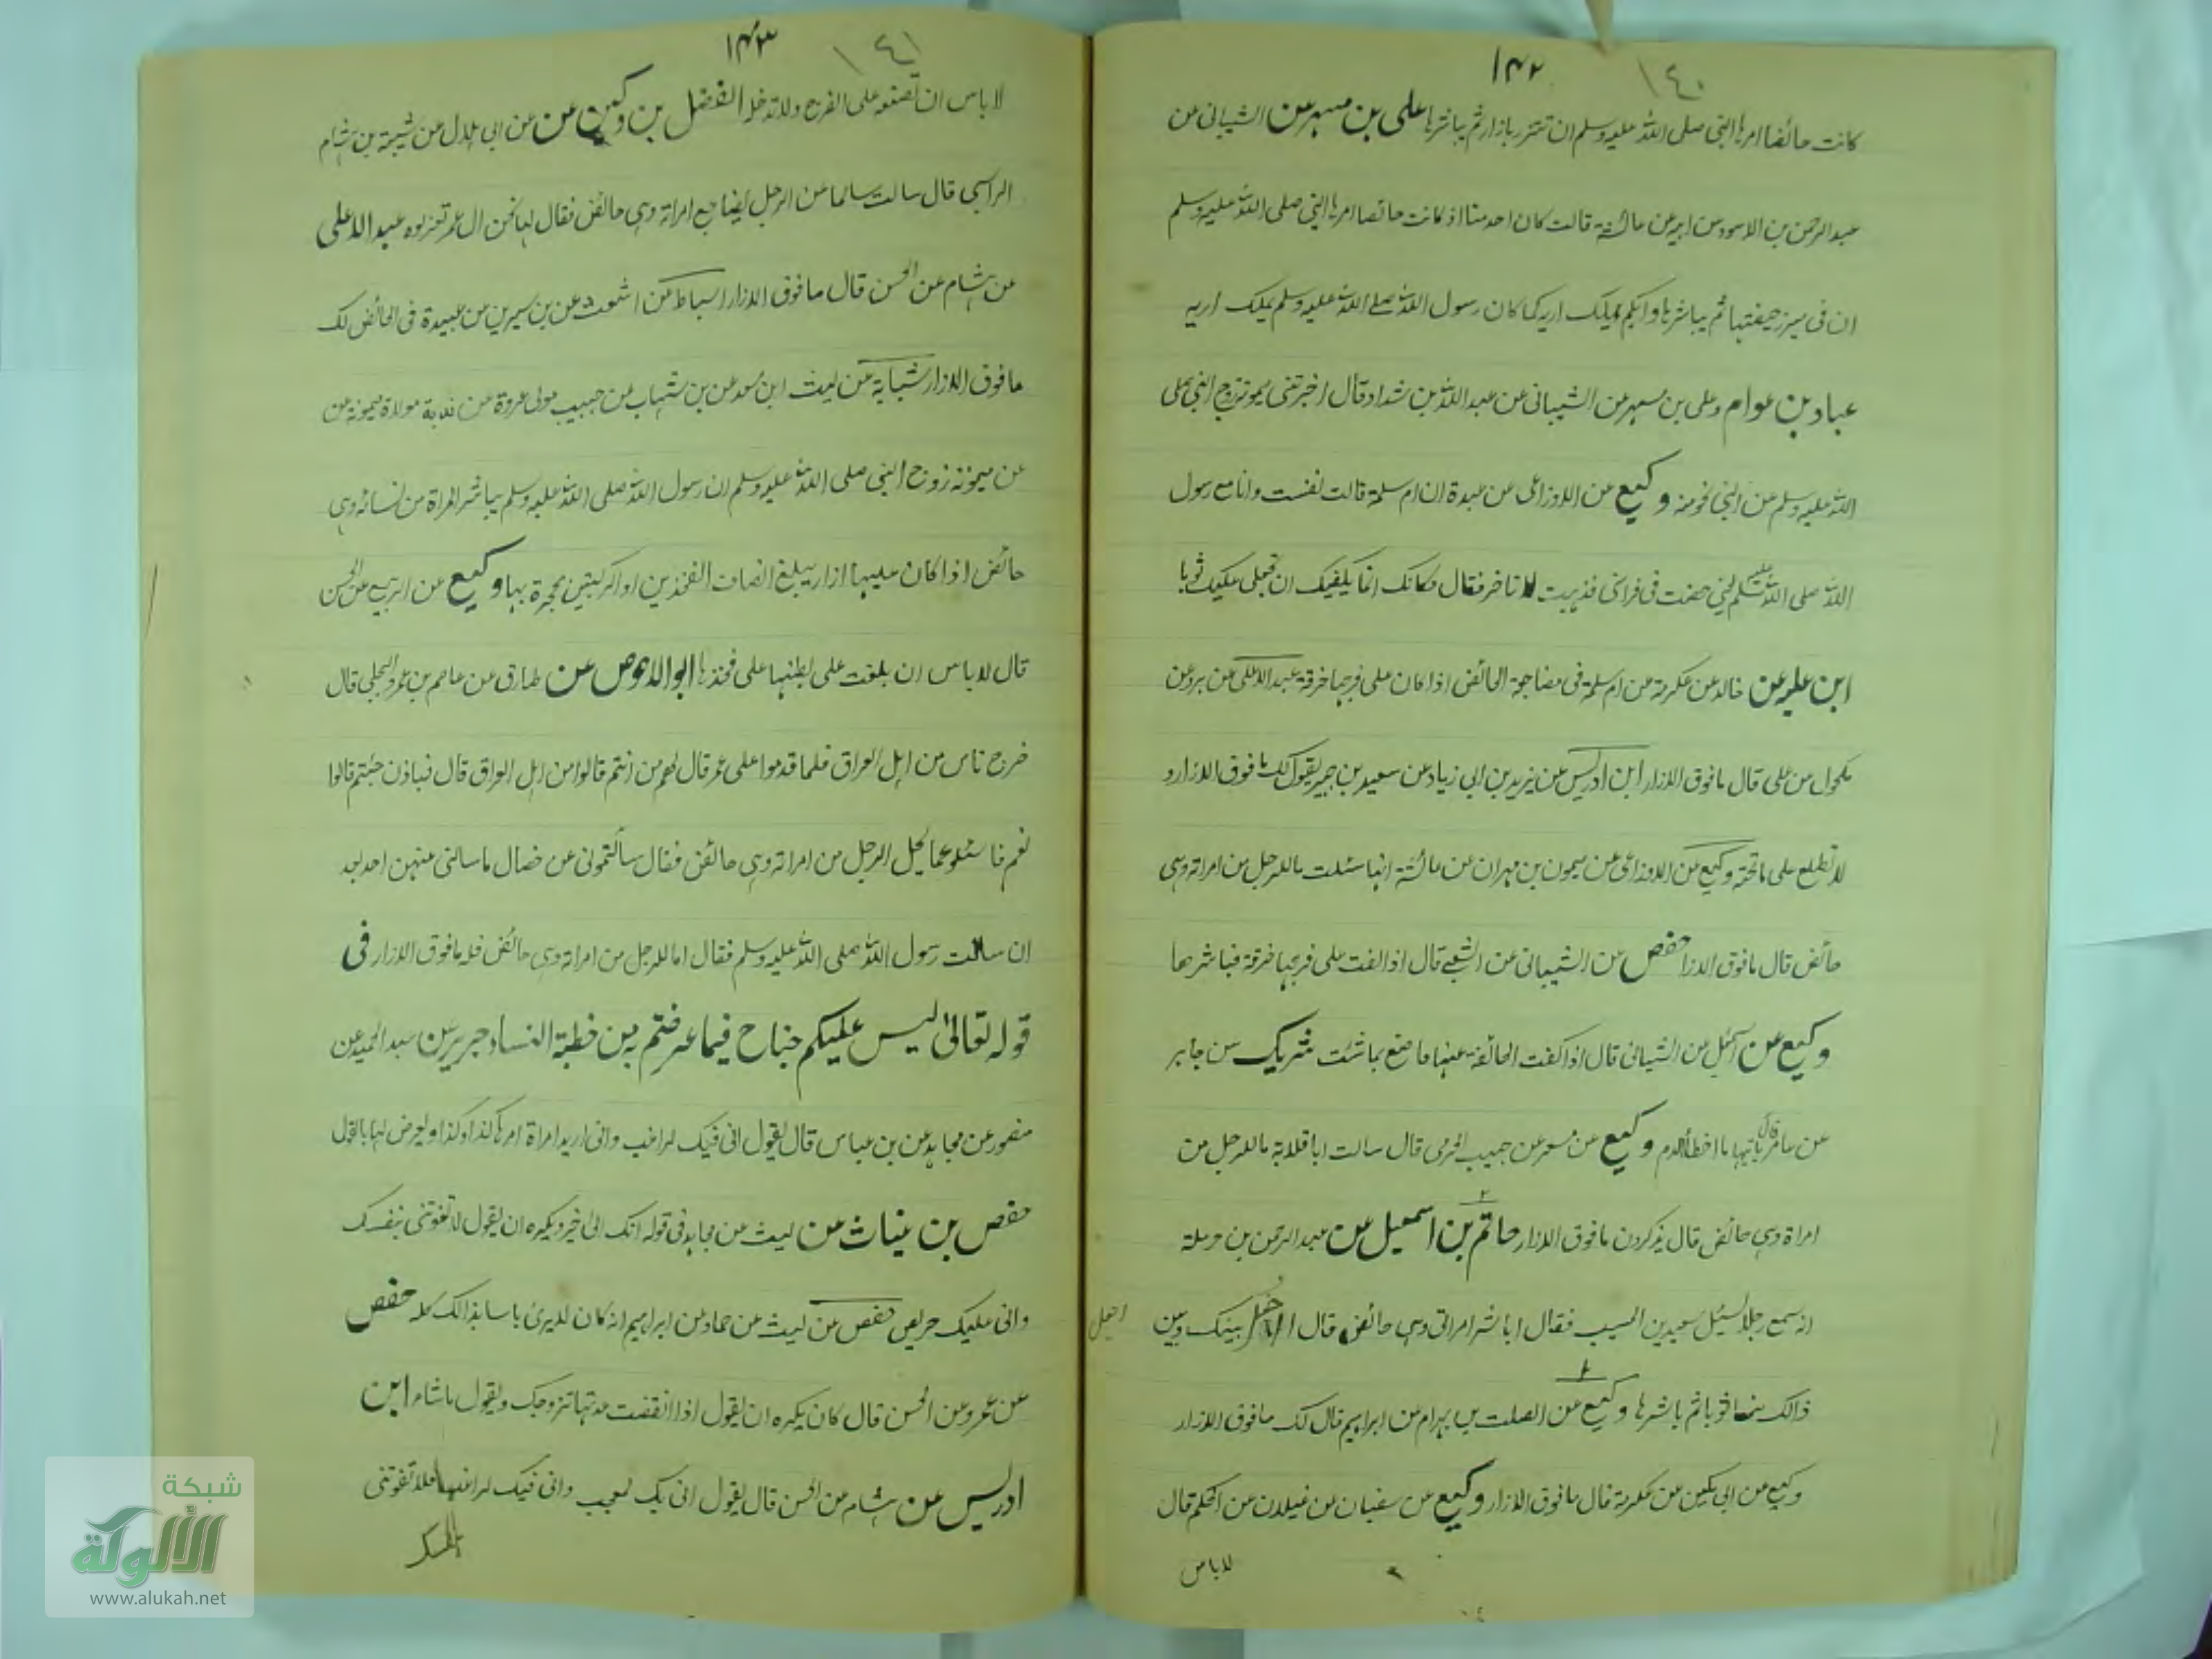 ١٤٢ ١٤٠
كانت حائضا امرها النبي صلى الله عليه وسلم ان تتزر بازار ثم يباشرها على بن مسهر عن الشيبانى عن
عبد الرحمن بن الاسود عن ابيه عن عائشة قالت كان احدىنا اذ كانت حائضا امرها النبي صلى الله عليه وسلم
ان فى حيضتها ثم يباشرها وايكم يملك اربه كما كان رسول الله صلے الله عليه وسلم يملك اربه
عباد بن عوام وعلى بن مسهر عن الشيبانى عن عبد الله بن شداد قال اخبرتنى ميمونة زوج النبي صلى
الله عليه وسلم عن النبي نحو منه وكيع عن الاوزاعى عن عبدة ان ام سلمة قالت نفست وانا مع رسول
الله صلى الله عليه وسلم فى فراش فذهبت لاتاخر فقال مكانك انما يكفيك ان تجعلى عليك ثوبا
ابن عليه عن خالد عن عكرمة عن ام سلمة فى مضاجعة الحائض اذا كان على فرجها خرقة عبد الاعلى عن برد عن
مكحول عن على قال ما فوق الازار ابن ادريس عن يزيد بن ابى زياد عن سعيد بن جبير يقول لك ما فوق الازار و
لا تطلع على ما تحته وكيع عن الاوزاعى عن ميمون بن مهران عن عائشة انها سئلت ما للرجل من امراته وهى
حائض قال ما فوق الازار حفص عن الشيبانى عن الشعبے قال اذا الفت على فرجها خرقة فباشرها
وكيع عن اسمعيل عن الشيبانى قال اذا كفت الحائضة عنها فاصنع بما شئت شريك عن جابر
عن عامر قال ياتيها ما اخطأ الدم وكيع عن مسعر عن حبيب الجرمى قال سالت ابا قلابة ما للرجل من
امراة وهى حائض قال يذكرون ما فوق الازار حاتم بن اسمعيل عن عبد الرحمن بن حرملة
انه سمع رجلا يسئل سعيد بن المسيب فقال اباشر امراتى وهى حائض قال اجعل بينك وبين
اجعل
ذالك منها ثوبا ثم باشرها وكيع عن الصلت بن بهرام عن ابراهيم قال لك ما فوق الازار
وكيع عن ابى مكين عن عكرمة قال ما فوق الازار وكيع عن سفيان عن غيلان عن الحكم قال
لا باس
١٤٣ ١٤١
لا باس ان تضعه على الفرج ولا تدخله الفضل بن دكين عن عن ابى هلال عن شيبة بن هشام
الراسبى قال سالت سالما عن الرجل يضاجع امراته وهى حائض فقال اما نحن ال عمر نعتزلوه عبد الاعلى
عن هشام عن الحسن قال ما فوق الازار اسباط عن اشعث عن بن سيرين عن عبيدة فى الحائض لك
ما فوق الازار شبابة عن ليث ابن سعد عن بن شهاب عن حبيب مولى عروة عن ندبة مولاة ميمونة عن
عن ميمونة زوج النبي صلى الله عليه وسلم ان رسول الله صلى الله عليه وسلم يباشر المراة من نسائه وهى
حائض اذا كان عليها ازار يبلغ انصاف الفخذين او الركبتين محتجزة بها وكيع عن الربيع عن الحسن
قال لا باس ان يلعب على بطنها على فخذها ابو الاحوص عن طارق عن عاصم بن عمرو البجلى قال
خرج ناس من اهل العراق فلما قدموا على عمر قال لهم من انتم قالوا من اهل العراق قال فباذن جئتم قالوا
نعم فاسئلوه عما يحل الرجل من امراته وهى حائض فقال سألتمونى عن خصال ما سالنى عنهن احد بعد
ان سالت رسول الله صلى الله عليه وسلم فقال اما للرجل من امراته وهى حائض فله ما فوق الازار فى
قوله تعالى ليس عليكم جناح فيما عرضتم به من خطبة النساء جرير عن عبد الحميد عن
منصور عن مجاهد عن بن عباس قال يقول انى فيك لراغب وانى اريد امراة امرها كذا وكذا ويعرض لها بالقول
حفص بن غياث عن ليث عن مجاهد فى قوله انك الى خير ويكره ان يقول لا تفوتنى بنفسك
وانى عليك حريص حفص عن ليث عن حماد عن ابراهيم انه كان لا يرى باسا بذالك كله حفص
عن عمرو عن الحسن قال كان يكره ان يقول اذا انقضت عدتها تزوجك ويقول ما شاء ابن
ادريس عن هشام عن الحسن قال يقول انى بك لمعجب وانى فيك لراغب فلا تفوتنى
شبكة
الألوكة
www.alukah.net